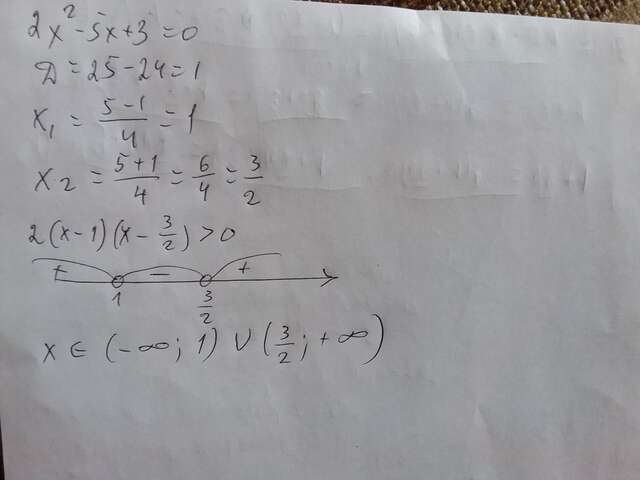 2x² - 5x + 3 = 0
D = 25 - 24 = 1
x₁ = (5-1)/4 = 1
x₂ = (5+1)/4 = 6/4 = 3/2
2(x-1)(x - 3/2) > 0
+ - +
1 3/2
x ∈ (-∞; 1) ∪ (3/2; +∞)